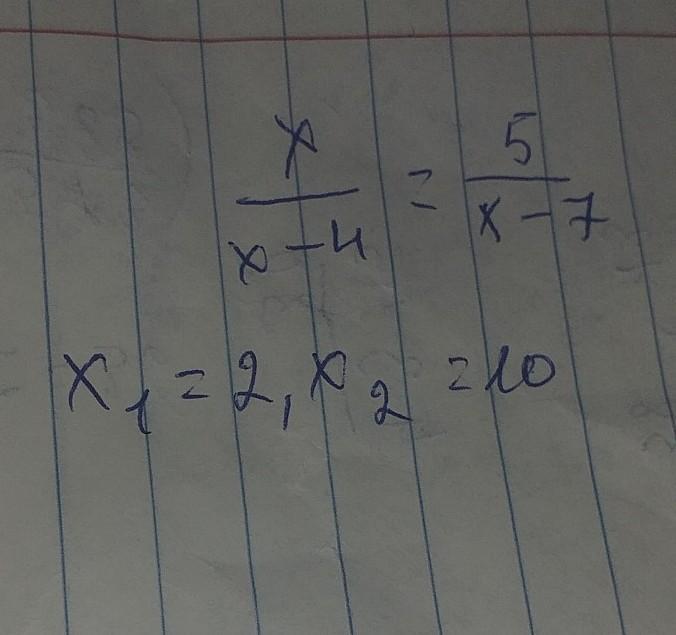 x/(x-4) = 5/(x-7)
x₁ = 2, x₂ = 10